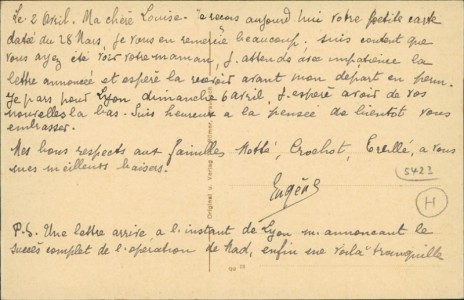 Le 2 Avril. Ma chère Louise. Je recois aujourd'hui votre petite carte
datée du 28 Mars, je vous en remercie beaucoup, suis content que
vous ayez été voir votre maman, j'attends avec impatience la
lettre annoncée et espère la recevoir avant mon départ en perm.
Je pars pour Lyon dimanche 6 avril, j'espère avoir de vos
nouvelles la bas. Suis heureux a la pensée de bientot vous
embrasser.
Mes bons respects aux familles Crochot, a vous
mes meilleurs baisers.
5423
Eugène
H
P.S. Une lettre arrive a l'instant de Lyon m'annoncant le
succès complet de l'opération de enfin me voila tranquille